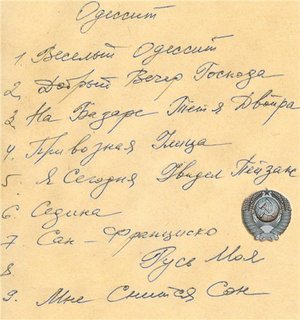 Одессит
1. Веселый Одессит
2. Добрый Вечер Господа
3. На Базаре Тетя Двойра
4. Привозная Улица
5. Я Сегодня Увидел Пейзаж
6. Седина
7. Сан - Франциско
8 Русь Моя
9. Мне Снится Сон